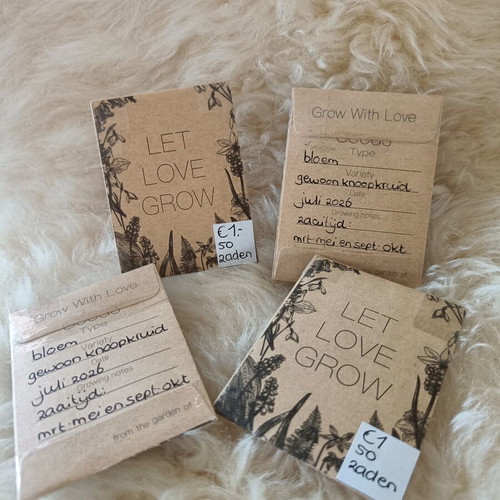 LET
LOVE
GROW
€1.-
50
zaden
Grow With Love
Seeds
Type
bloem
Variety
gewoon knoopkruid
Date
juli 2026
Growing notes
zaaitijd:
mrt-mei en sept-okt
the garden of
Grow With Love
Seeds
Type
bloem
Variety
gewoon knoopkruid
Date
juli 2026
Growing notes
zaaitijd:
mrt-mei en sept-okt
from the garden of
LET
LOVE
GROW
€1
50
zaden